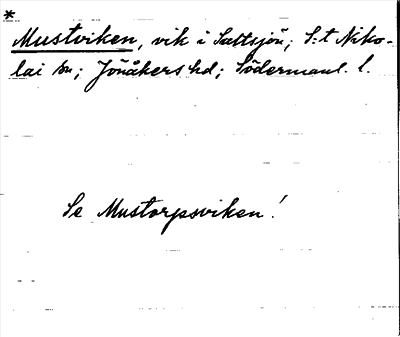 *
Mustviken, vik i Sattsjön; S:t Niko-
lai sn; Jönåkers hd; Södermanl. l.
Se Mustorpsviken!